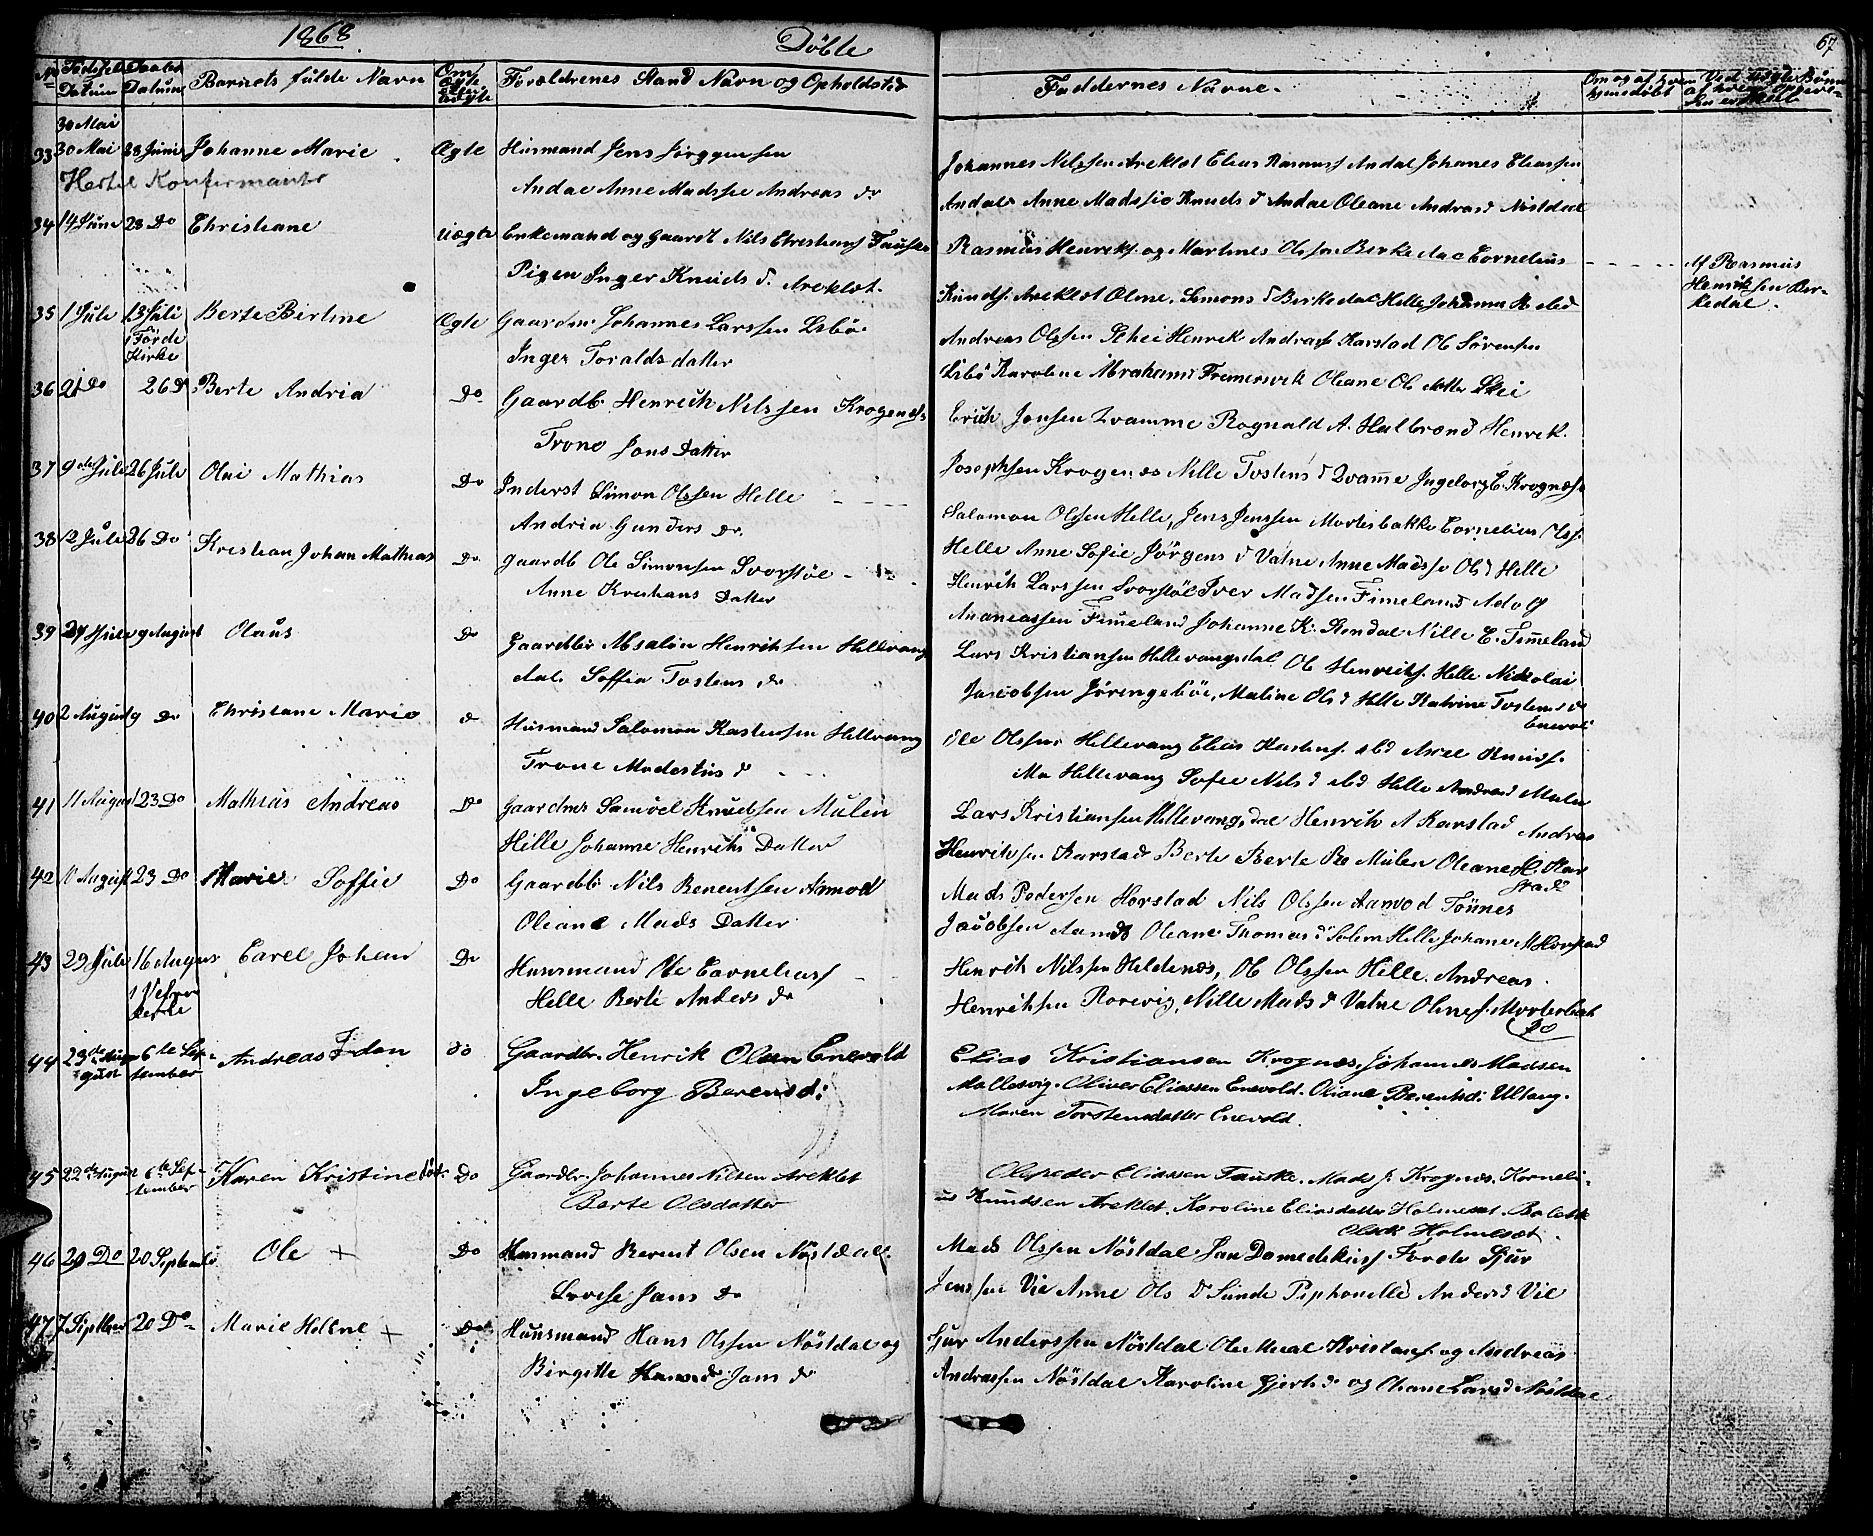 1868
Döbte
67
No Fødsels Datum
Daabs Datum
Barnets fulde Navn
Om Ægte eller uægte
Forældrenes Stand Navn og Opholdsted
Faddernes Navne.
Om og af hvem hjemsdöbt
Ved uægte Børn af hvem Opgivelsen er skeet
30 Mai
33 30 Mai 28 Juni Johanne Marie Ægte Husmand Jens Jørggensen
Andal Anne Madssie Andreas dr
Johannes Nilssen Areklet Elias Rasmus Andal Johanes Eliassen
Andal Anne Madssie Knuds d Andal Oleane Andreas d Nöstdal
Hertil Konfirmanter
34 14 June 28 Do Christiane Uægte Enkemand og Gaardb Nils Christians Fauske
Pigen Inger Knuds d. Areklet.
Rasmus Henriks. og Martines Olssen Birkedal Cornelius
Knuds. Areklet Oline Simons d Birkedal Helle Johanna
Af Rasmus
Henriksen Bir-
kedal.
35 1 Jule 13 Juli Berte Birtine Ægte Gaardm Johannes Larssen Lsbö
i Førde
Kirke
Inger Toralds datter
Andreas Olssen Schei Henrik Andreas Karstad Ole Sörensen
Lsbö Karoline Abrahams Fremersvik Oleane Ols datter Skei
36 21 Do 26 D Berte Andria Do Gaardb. Henrich Nilssen Krogenæs
Trone Jons Datter
Erich Jonsen Kvamme Rognald A. Halbrend Henrik
Josephsen Krogenæs Nille Tostens d Kvame Ingeborg E. Krognæs
37 9de Jule 26 Jule Olai Mathias Do Inderst Simon Olssen Helle
Andria Gunders dr.
Salomon Olssen Helle, Jens Jenssen Mortesbakke Cornelius Ols.
Helle Anne Sofie Jörgens d Vatne Anne Madssie Ols d Helle
38 12 Jule 26 Do Kristian Johan Mathias Do gaardb Ole Simonsen Svorstöl
Anne Kristians Datter
Henrik Larssen Svorstöl Iver Madsen Fimeland Adolf
Ananiassen Fimeland Johanne K. Stendal Nille E. Fimeland
39 27 Jule 9 August Olaus Do Gaardbr Absalon Henriksen Hellevang
dal Soffia Tostens dr
Lars Kristiansen Hellevangsdal Ole Henriks. Helle Nikolai
Jacobsen Jöringeböe, Maline Ols d Helle Katrine Tostens d
Enevol
40 2 August 9 Do Christane Marie d Husmand Salomon Kastensen Hellevang
Trone Modestus d
Ole Olssen Hellevang Elias Kastens. ibd Axel Knuds.
Ma Hellevang Sofie Nils d ibd Helle Andreas d Mulen
41 11 August 23 Do Mathias Andreas Do Gaardms Samoel Knudsen Mulen
Hille Johanne Henriks Datter
Lars Kristiansen Hellevangsdal Henrik A Karstad Andreas
Henriksen Karstad Berte Berte Mulen Oleane H. Kar
stad
42 11 August 23 Do Marie Soffie Do Gaardbr Nils Benentsen Aamod
Oleane Mads Datter
Mads Pedersen Horstad Nils Olssen Aamod Tönnes
Jacobsen Aamod Oleane Thomas d Solem Helle Johane M Horstad
43 29 Jule 16 August Carel Johan Do Huusmand Ole Cornelius
i Vefring
Kirke
Helle Berte Anders dr
Henrik Nilssen Heldenæs, Ole Olssen Hille. Andreas
Henriksen Rorevig, Nille Mads d Vatne Oline J. Morterbak
44 23de August 6te September Andreas Idon do Gaardbr. Henrik Olsen Enevold
Ingeborg Berensd:
Elias Kristiansen Krognæs, Johannes Madsen
Mallesvig. Oliver Eliassen Enevold. Oliane Berentsd: Ultang.
Maren Torstensdatter Enevold.
45 22de August 6te September Karen Kristine Do Gaardbr. Johannes Nilsen Areklet
Berte Olsdatter
Ole Peder Eliassen Fauske. Mads J. Krognæs. Korneli-
us Knudsen Areklet. Karoline Eliasdatter Holmeset. Bolette
Olsd. Holmeset.
46 29 Do 20 September Ole + Do Husmand Berent Olsen Nöstdal
Lovise Jans Do
Mads Olssen Nöstdal Jan Domedikus Förde Sjur
Jenssen Vie Anne Ols d Sunde Anders d Vie
47 7 September 20 Do Marie Hellene + Do Huusmand Hans Olssen Nöstdal og
Birgitte Jans dr
Sjur Anderssen Nöstdal Kristians. og Andreas
Andrassen Nöstdal Karoline Gjerts d og Oliane Lars d Nöstdal